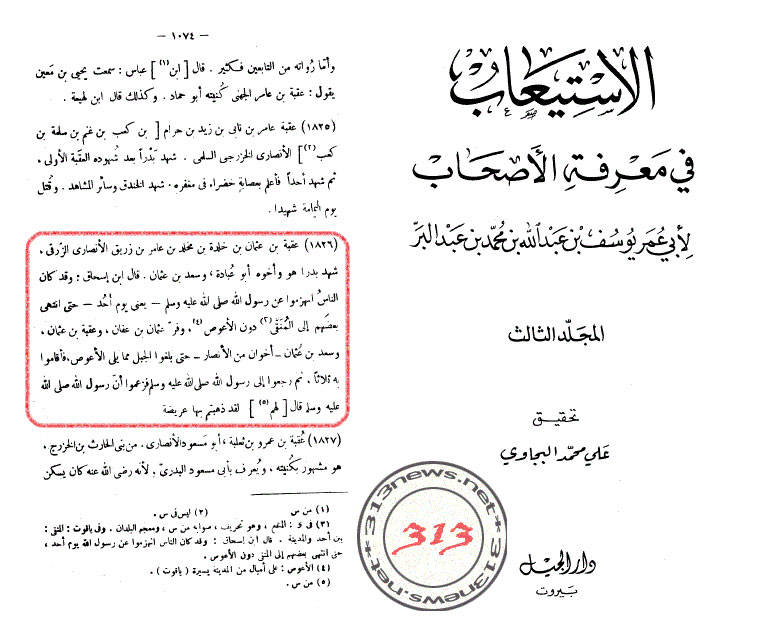 الاستيعاب
في معرفة الأصحاب
لأبي عمر يوسف بن عبد الله بن محمد بن عبد البر
المجلد الثالث
تحقيق
علي محمد البجاوي
دار الجيل
بيروت
— ١٠٧٤ —
وأما رُواته من التابعين فكثير . قال [ ابن (١) ] عباس : سمعت يحيى بن مَعين
يقول : عقبة بن عامر الجهنى كُنيته أبو حماد . وكذلك قال ابن لهيعة .
(١٨٢٥) عقبة عامر بن نابى بن زيد بن حرام [ بن كعب بن غنم بن سلمة بن
كعب (٢) ] الأنصارى الخزرجى السلمى . شهد بَدْراً بعد شُهوده العقَبة الأولى ،
ثم شهد أحداً فأعلم بعصابةٍ خضراء فى مغفره . شهد الخندق وسائر المشاهد . وقُتل
يوم اليمامة شهيدا .
(١٨٢٦) عقبة بن عثمان بن خلدة بن مخلد بن عامر بن زريق الأنصارى الزُرقى ،
شهد بدرا هو وأخوه أبو عُبادة ، وسعد بن عثمان . قال ابن إسحاق : وقد كان
الناسُ انهزموا عن رسول الله صلى الله عليه وسلم — يعنى يوم أُحد — حتى انتهى
بعضهم إلى المُنَقَّى (٣) دون الأعوص (٤) ، وفرّ عثمان بن عفان ، وعقبة بن عثمان ،
وسعد بن عُثمان - أخوان من الأنصار - حتى بلغوا الجبل مما يلى الأعوص ، فأقاموا
به ثلاثاً ، ثم رجعوا إلى رسول الله صلى الله عليه وسلم فزعموا أنّ رسول الله صلى الله
عليه وسلم قال [ لهم (٥) ] لقد ذهبتم بها عريضة
(١٨٢٧) عُقبة بن عمرو بن ثعلبة ، أبو مسعود الأنصارى . من بنى الحارث بن الخزرج ،
هو مشهور بكُنيته ، ويُعرف بأبى مسعود البدرىّ ، لأنه رضى الله عنه كان يسكن
(١) من س (٢) ليس فى س .
(٣) فى ء : المنعم ، وهو تحريف ، صوابه من س ، ومعجم البلدان . وفى ياقوت : المنقى :
بين أحد والمدينة . قال ابن إسحاق : وقد كان الناس انهزموا عن رسول الله يوم أحد ،
حتى انتهى بعضهم إلى المنقى دون الأعوص .
(٤) الأعوص : على أميال من المدينة يسيرة ( ياقوت ) .
(٥) من س .
313news.net*313news.net*
313